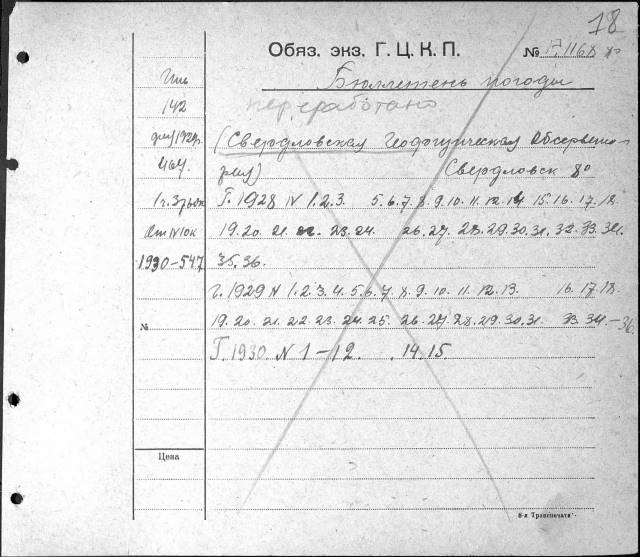 18
Обяз. экз. Г. Ц. К. П. №
Бюллетень погоды
142
переработано
(Свердловская Геофизическая Обсервато-
рия) Свердловск 8°
Г. 1928 № 1.2.3. 5.6.7.8.9.10.11.12.14 15.16.17.18
19.20. 21. 22. 23.24. 26.27. 28.29.30.31. 32.33.34.
1930-547 35.36.
г. 1929 № 1.2.3.4.5.6.7.8.9.10.11.12.13. 16.17.18.
№ 19.20. 21.22.23.24.25. 26.27.28.29.30.31. 33.34.-36
Г. 1930. № 1-12. 14.15.
Цена
8-я Транспечати